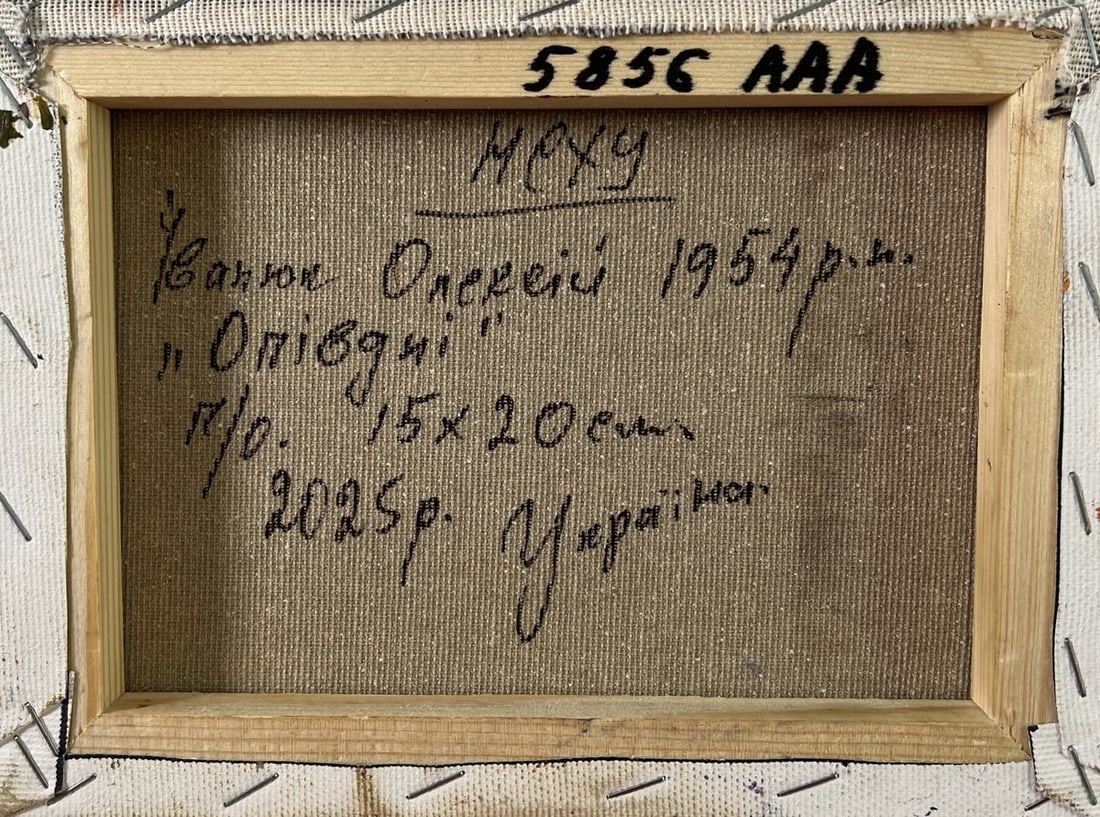 5856 AAA
НСХУ
Іванюк Олексій 1954 р.н.
„Опівдні"
п/о. 15x20 см.
2025р. Україна